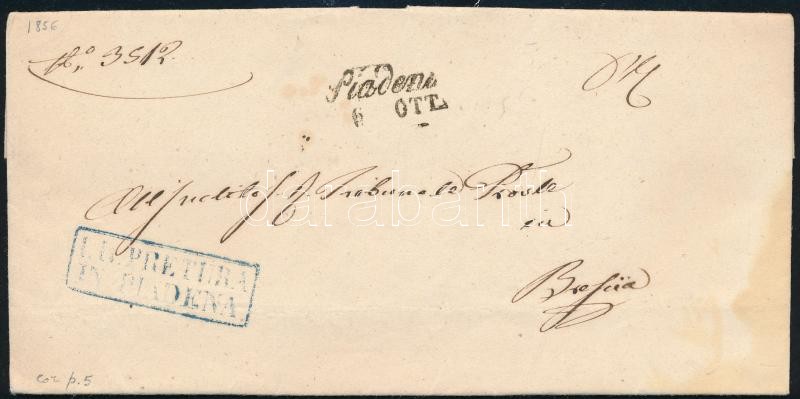 1856
N.o 3512.
Piadena
6 OTT.
Tribunale Prov.le
in
Brescia
I. R. PRETURA
IN PIADENA
cor p.5
darabanth